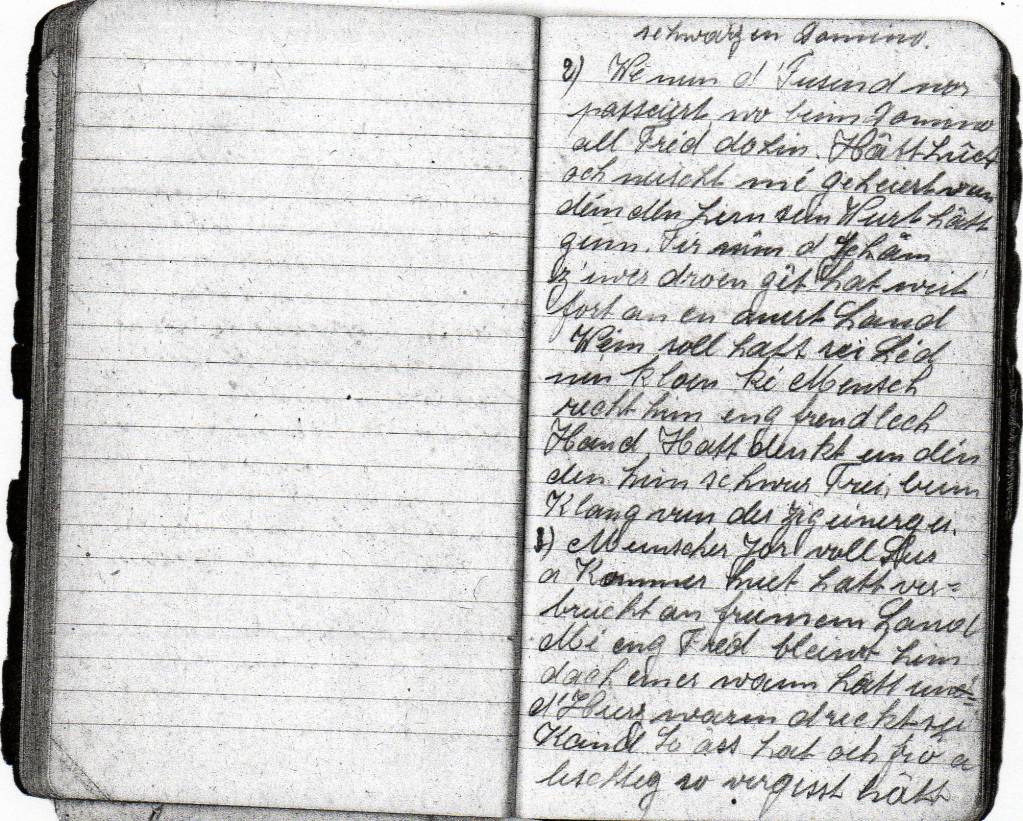 schwarzen Domino.
2) Wé nun d' Tusend wor
passeiert wo beim Domino
all Fréd dohin. Hätt Lück
och nuscht mé geheiert vun
dém dén hirn sein Wurt hätt
ginn. Fir d' Schäm
z' iwer droen gét hat weit
fort an en anert Land
Wem soll hatt sei Léd
nun kloen ké Mensch
recht him eng frendlech
Hand Hatt denkt un dén
den him schwur Trei, beim
Klang vun der Zigeinerges.
3) Munscher Jor voll
a Kummer huet hatt ver=
bruecht an fremem Land
Mi eng Fréd bleiwt him
dach emer wann hatt
d'Hierz warm dreckt sei
Kand So äss hat och fro a
leschteg so vergisst hätt